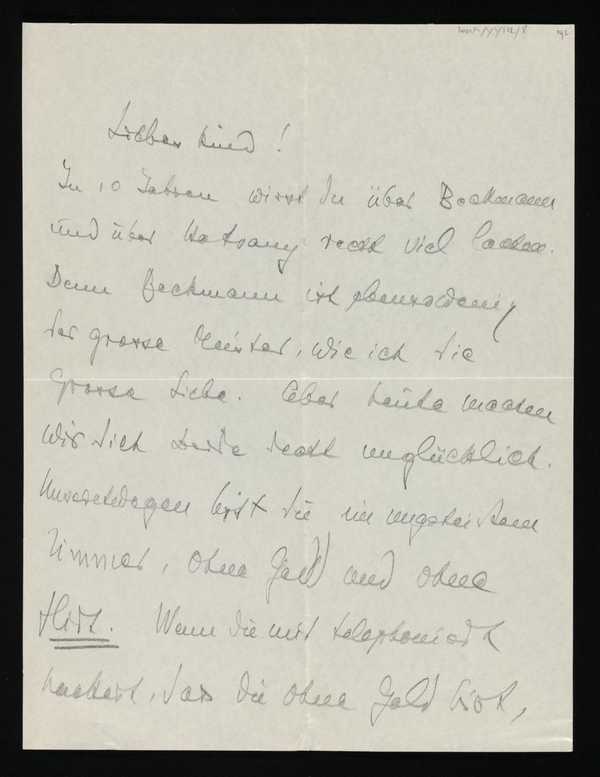 Liebes Kind!
In 10 Jahren wirst Du über Beckmann
und über Hatvany recht viel lachen.
Denn Beckmann ist ebensowenig
der grosse Meister, wie ich die
grosse Liebe. Aber heute machen
wir Dich beide recht unglücklich.
Unseretwegen bist Du im ungeheizten
Zimmer, ohne Geld und ohne
Hirt. Wenn Du mir telephoniert
hättest, dass Du ohne Geld bist,